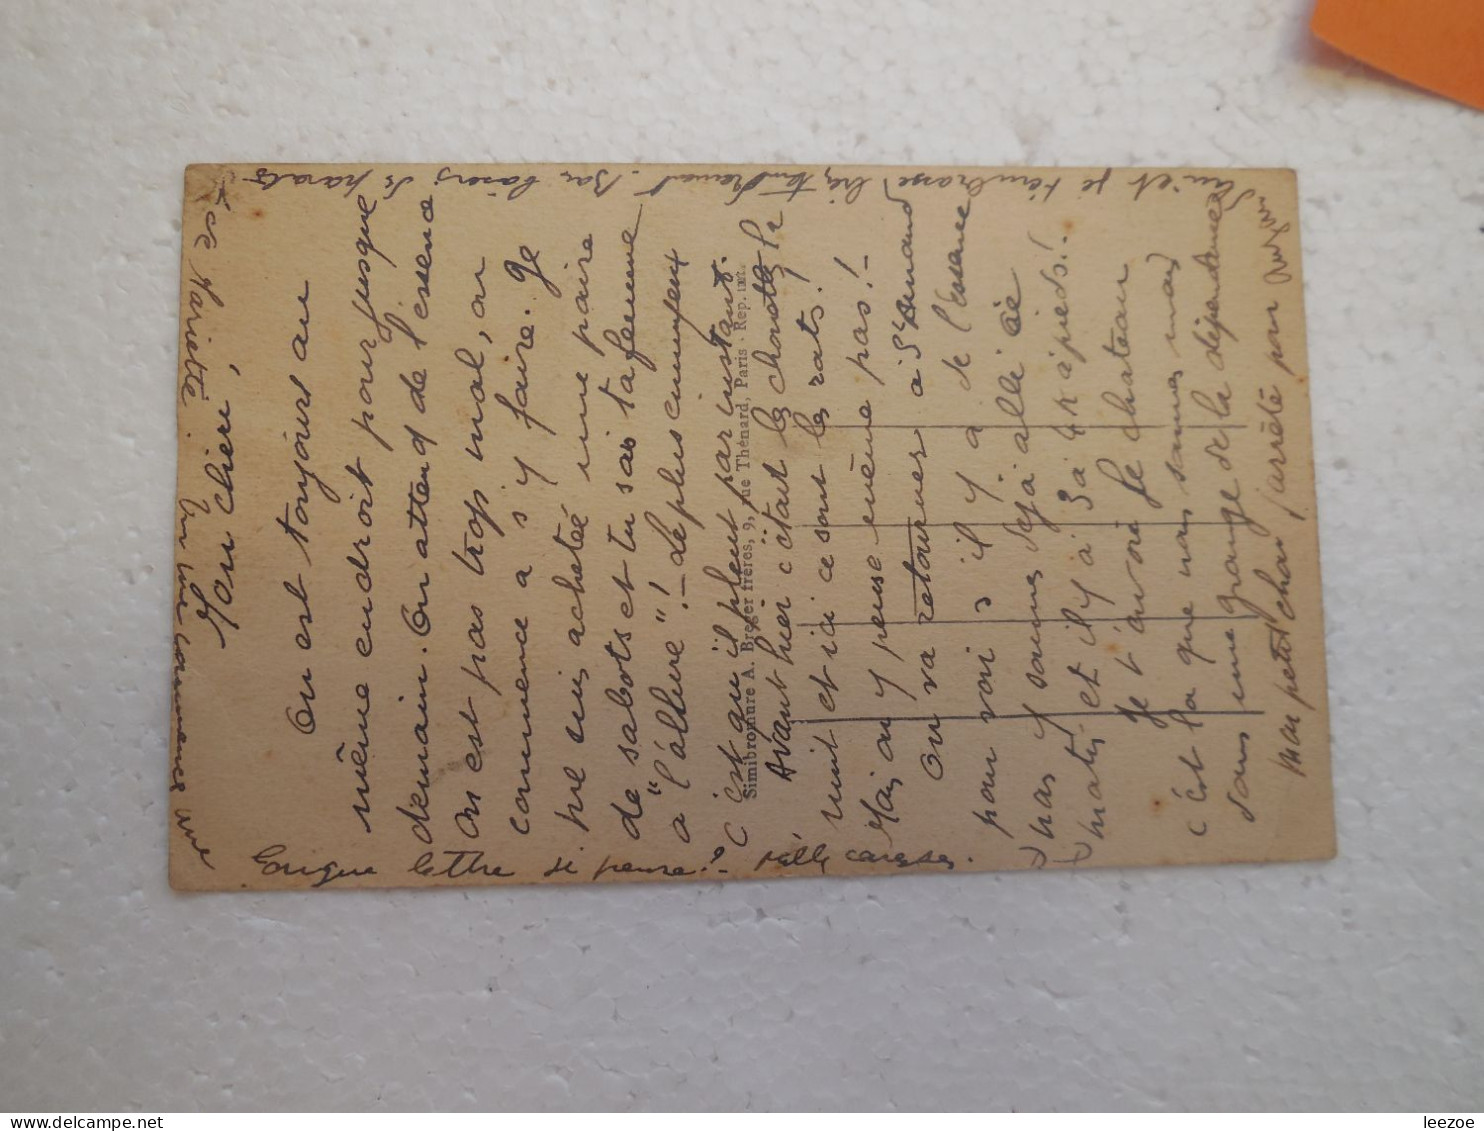 Mon cheri,
On est toujours au
même endroit pour jusque
demain. On attend de l'essence
On est pas trop mal, on
commence a s'y faire. Je
me suis achetée une paire
de sabots et tu sais ta femme
a "l'allure"! - Le plus ennuyeux
c'est qu'il pleut par instant.
Avant hier c'était les chouettes la
nuit et ici ce sont les rats!
Mais on y pense même pas! -
On va retourner a St Amand
pour voir s'il y a de l'essence
nous y sommes deja allé ce
matin et il y a 3 a 4 k a pieds!
Je t'envoie le chateau
c'est la que nous sommes mais
dans une grange de la dépendance
Mon petit chou j'arrête pour
et je t'embrasse bien tendrement.
baisers
Longue lettre si pense? - Mille caresses.
une
Simibromure A. Breger frères, 9, rue Thénard, Paris - Rep. int.
leezoe
delcampe.net